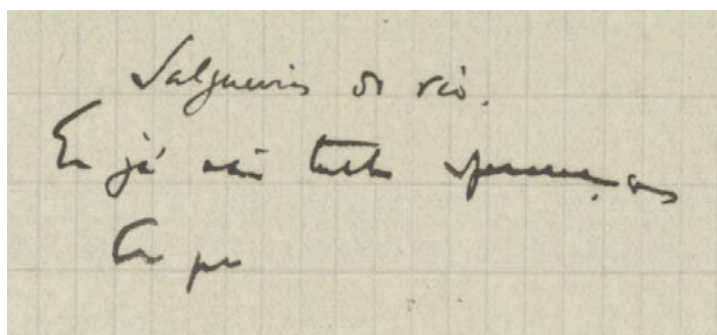 Salgueiros do rio.
Eu já não tenho esperanças
Eu per